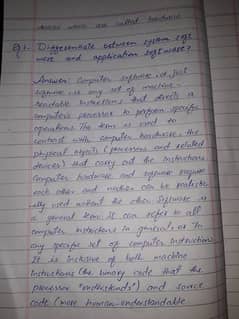 devices which are called hardware
Q1- Differentiate between system soft
ware and application software?
Answer: Computer software is just
software is any set of machine-
readable instructions that directs a
computer's processor to perform specific
operations. The term is used to
contrast with computer hardware, the
physical objects (processors and related
devices) that carry out the instructions
Computer hardware and software require
each other and neither can be realistic
ally used without the other. Software is
a general term. It can refer to all
computer instructions in general or
any specific set of computer instructions
It is inclusive of both machine
instructions (the binary code that the
processor "understands") and source
code (more human-understandable